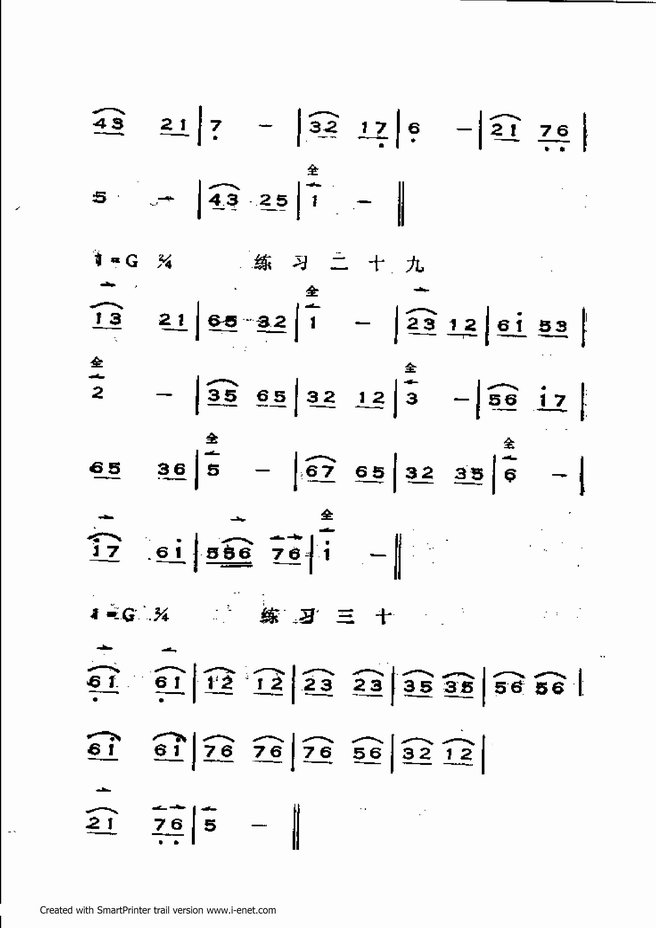 43 21 | 7̣ － | 32 17̣ | 6̣ － | 21 7̣6̣ |
全
5 － | 43 25 | 1 － ‖
1=G 2/4 练习二十九
全
13 21 | 65 32 | 1 － | 23 12 | 6i 53 |
全 全
2 － | 35 65 | 32 12 | 3 － | 56 i7 |
全 全
65 36 | 5 － | 67 65 | 32 35 | 6 － |
全
i7 6i | 556 76 | i － ‖
1=G 2/4 练习三十
6̣1 6̣1 | 12 12 | 23 23 | 35 35 | 56 56 |
6i 6i | 76 76 | 76 56 | 32 12 |
21 7̣6̣ | 5 － ‖
Created with SmartPrinter trail version www.i-enet.com